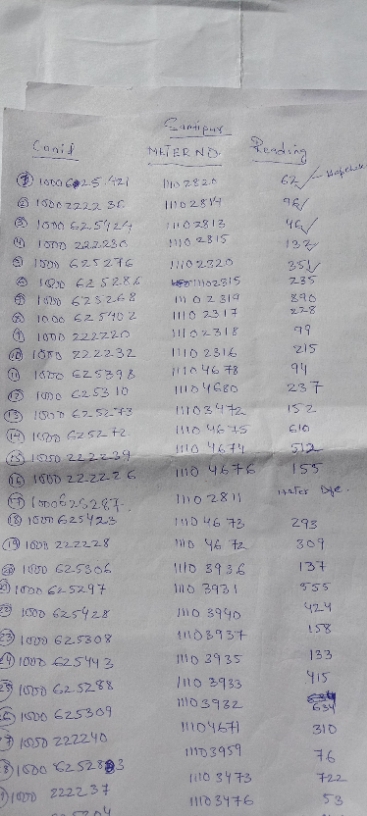 Conid METER NO. Reading
① 1000625421 11102820 62 ✓
② 1000222236 11102814 96 ✓
③ 1000 625424 11102813 46 ✓
④ 1000 222230 11102815 132 ✓
⑤ 1000 625276 11102320 351 ✓
⑥ 1000 625286 11102315 235
⑦ 1000 625268 11102319 890
⑧ 1000 625402 11102317 228
⑨ 1000 222220 11102318 99
⑩ 1000 222232 11102316 215
⑪ 1000 625398 11104678 94
⑫ 1000 625310 11104680 237
⑬ 1000 625273 11103472 152
⑭ 1000 625272 11104675 610
⑮ 1000 222239 11104674 512
⑯ 1000 222226 11104676 155
⑰ 1000625287 11102811
⑱ 1000 625423 11104673 293
⑲ 1000 222228 11104672 309
⑳ 1000 625306 11103936 137
1000 625297 11103931 555
1000 625428 11103940 424
23 1000 625308 11103937 158
24 1000 625443 11103935 133
25 1000 625288 11103933 415
26 1000 625309 11103932 634
7 1000 222240 11104671 310
8 1000 625283 11103959 76
9 1000 222237 11103473 722
11103476 53